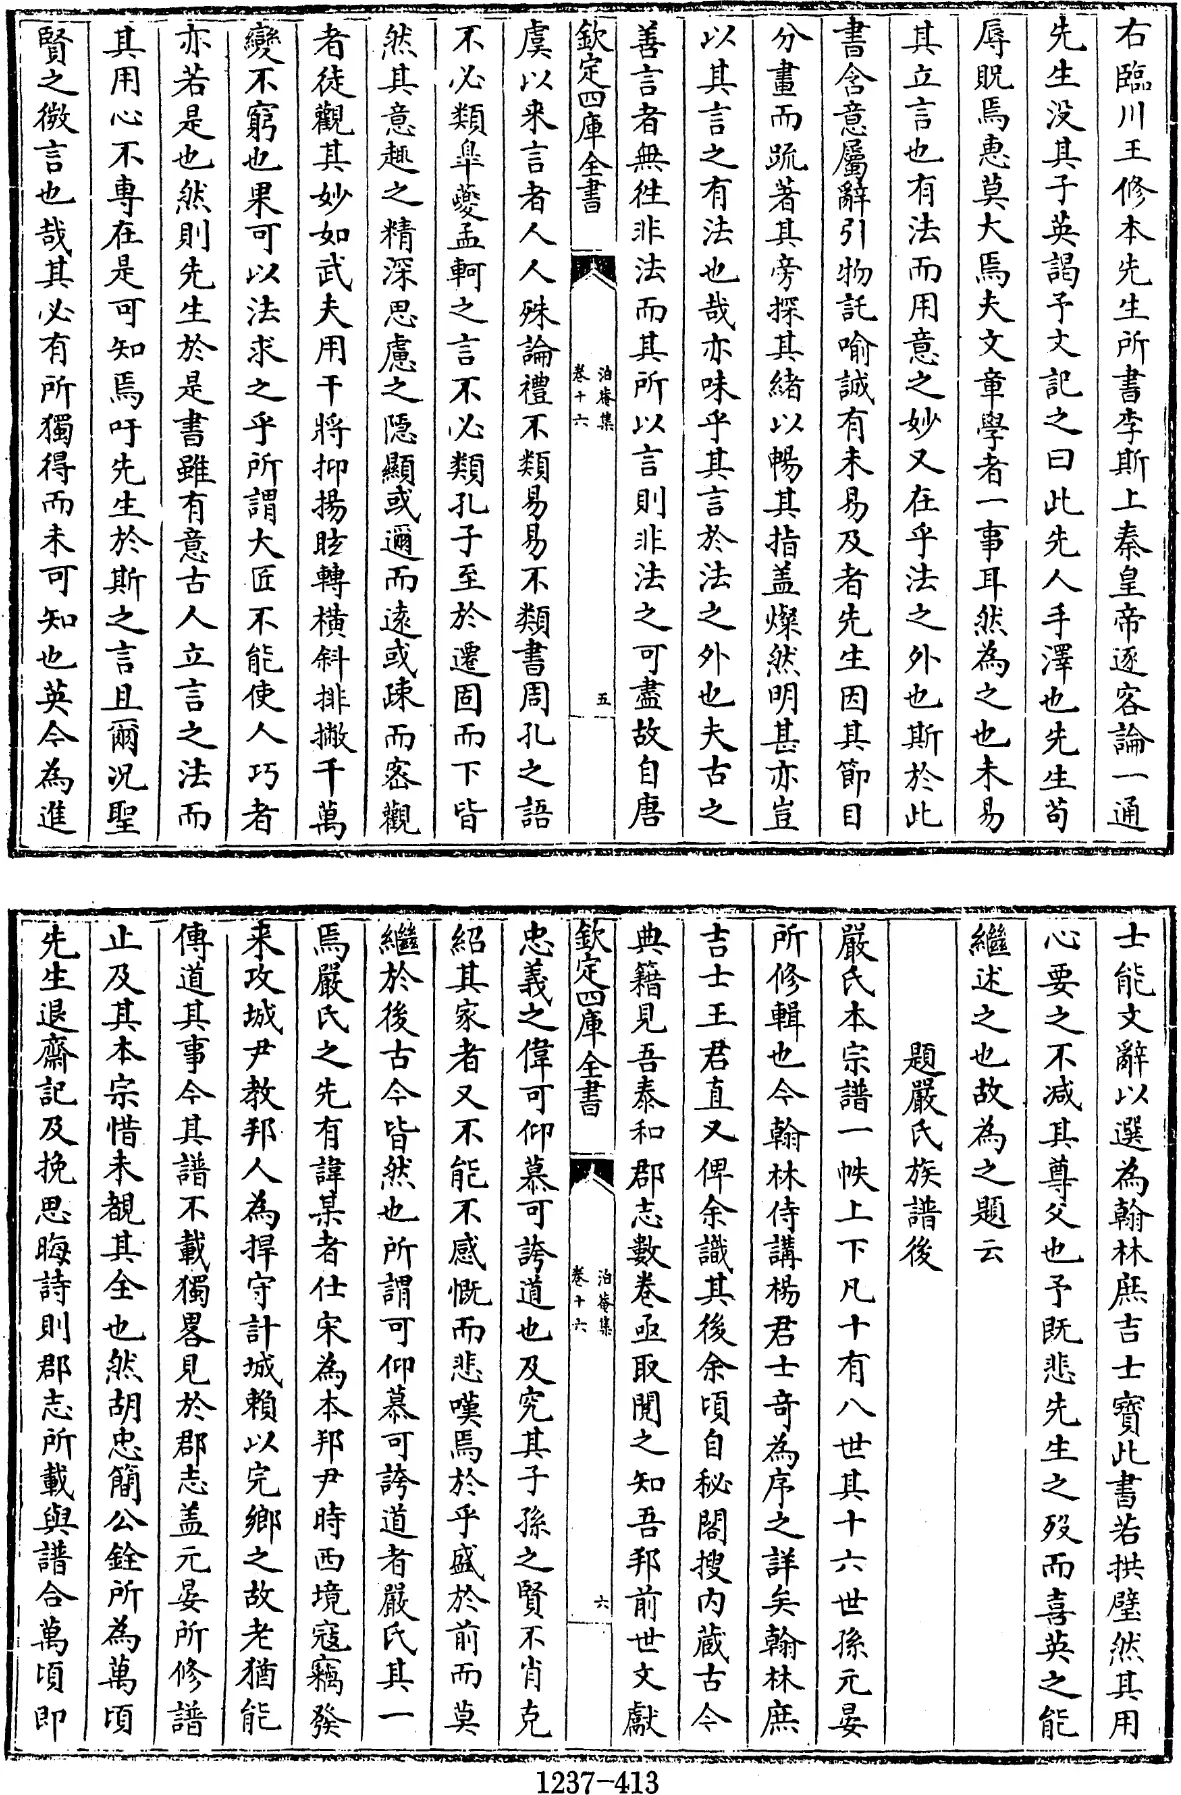 右臨川王修本先生所書李斯上秦皇帝逐客論一通
先生没其子英謁予文記之曰此先人手澤也先生苟
辱貺焉惠莫大焉夫文章學者一事耳然為之也未易
其立言也有法而用意之妙又在乎法之外也斯於此
書含意屬辭引物託喻誠有未易及者先生因其節目
分畫而疏著其旁探其緒以暢其指盖燦然明甚亦豈
以其言之有法也哉亦味乎其言於法之外也夫古之
善言者無徃非法而其所以言則非法之可盡故自唐
欽定四庫全書
泊菴集
卷十六
五
虞以来言者人人殊論禮不類易易不類書周孔之語
不必類臯夔孟軻之言不必類孔子至於遷固而下皆
然其意趣之精深思慮之隠顯或邇而遠或疎而宻觀
者徒觀其妙如武夫用干將抑揚眩轉横斜排撇千萬
變不窮也果可以法求之乎所謂大匠不能使人巧者
亦若是也然則先生於是書雖有意古人立言之法而
其用心不專在是可知焉吁先生於斯之言且爾况聖
賢之微言也哉其必有所獨得而未可知也英今為進
士能文辭以選為翰林庶吉士寳此書若拱璧然其用
心要之不减其尊父也予既悲先生之殁而喜英之能
繼述之也故為之題云
題嚴氏族譜後
嚴氏本宗譜一帙上下凡十有八世其十六世孫元晏
所修輯也今翰林侍講楊君士竒為序之詳矣翰林庶
吉士王君直又俾余識其後余頃自秘閣搜内蔵古今
典籍見吾泰和郡志數卷亟取閲之知吾邦前世文獻
欽定四庫全書
泊菴集
卷十六
六
忠義之偉可仰慕可誇道也及究其子孫之賢不肖克
紹其家者又不能不感慨而悲嘆焉於乎盛於前而莫
繼於後古今皆然也所謂可仰慕可誇道者嚴氏其一
焉嚴氏之先有諱某者仕宋為本邦尹時西境寇竊發
来攻城尹教邦人為捍守計城頼以完鄉之故老猶能
傳道其事今其譜不載獨畧見於郡志盖元晏所修譜
止及其本宗惜未覩其全也然胡忠簡公銓所為萬頃
先生退齋記及挽思晦詩則郡志所載與譜合萬頃即
1237-413